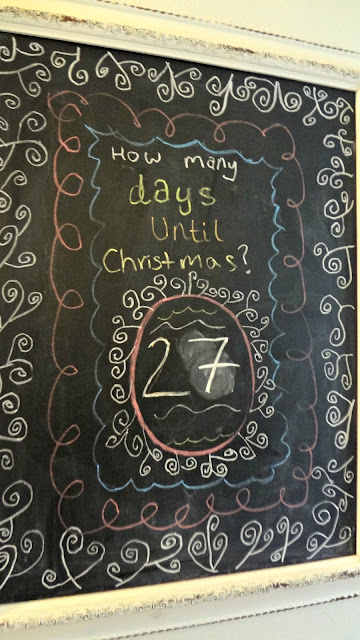 How many
days
Until
Christmas?
27